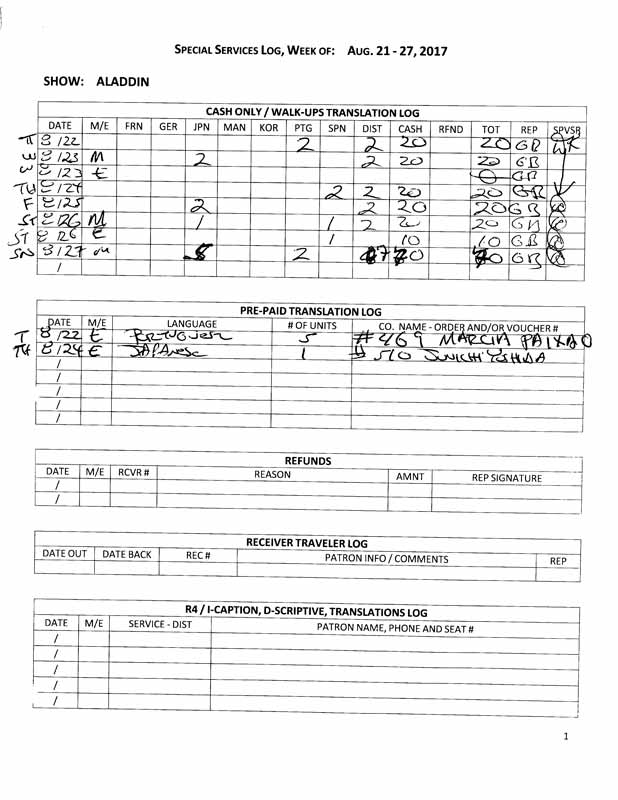 SPECIAL SERVICES LOG, WEEK OF: AUG. 21 - 27, 2017
SHOW: ALADDIN
CASH ONLY / WALK-UPS TRANSLATION LOG
DATE M/E FRN GER JPN MAN KOR PTG SPN DIST CASH RFND TOT REP SPVSR
T 8/22 2 2 20 20 GB
W 8/23 M 2 2 20 20 GB
W 8/23 E 0 GB
TH 8/24 2 2 20 20 GB
F 8/25 2 2 20 20 GB
ST 8/26 M 1 1 2 20 20 GB
ST 8/26 E 1 10 10 GB
SN 8/27 M 5 2 7 70 70 GB
/
PRE-PAID TRANSLATION LOG
DATE M/E LANGUAGE # OF UNITS CO. NAME - ORDER AND/OR VOUCHER #
T 8/22 E Portuguese 5 #469 MARCIA PAIXAO
TH 8/24 E JAPANese 1 # 510 JUNICHI YOSHIDA
/
/
/
/
/
REFUNDS
DATE M/E RCVR # REASON AMNT REP SIGNATURE
/
/
RECEIVER TRAVELER LOG
DATE OUT DATE BACK REC # PATRON INFO / COMMENTS REP
R4 / I-CAPTION, D-SCRIPTIVE, TRANSLATIONS LOG
DATE M/E SERVICE - DIST PATRON NAME, PHONE AND SEAT #
/
/
/
/
/
1